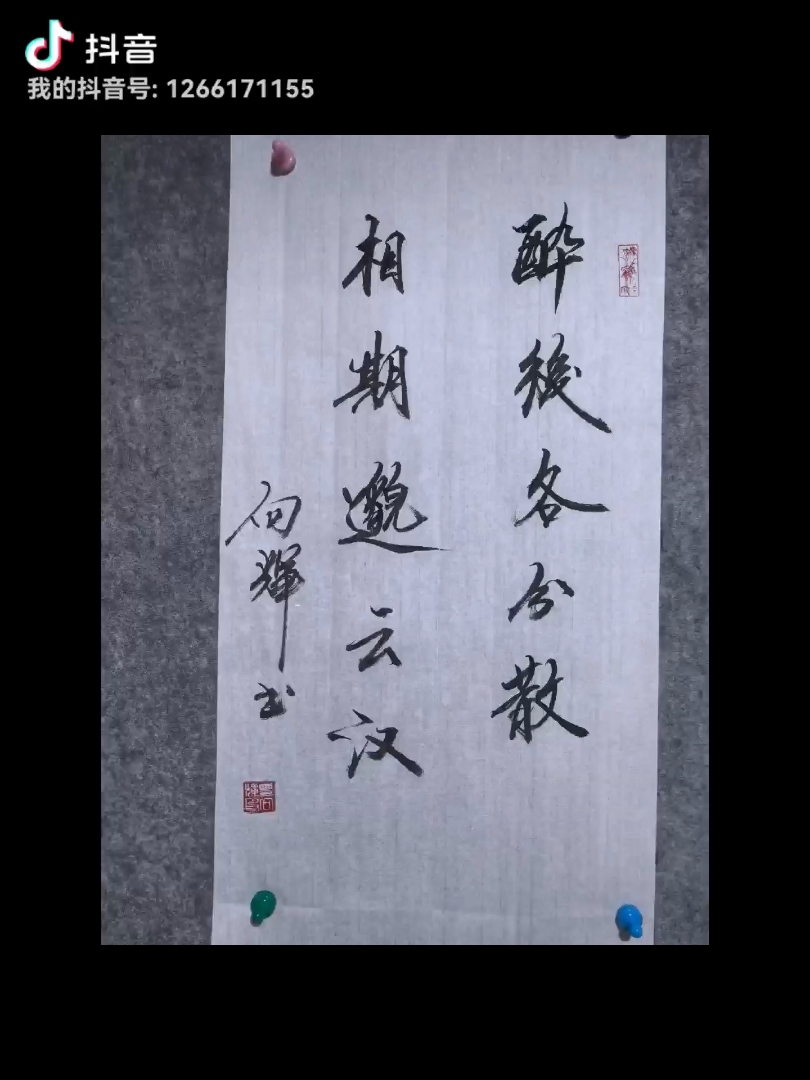 抖音
我的抖音号: 1266171155
醉後各分散
相期邈云汉
向辉书